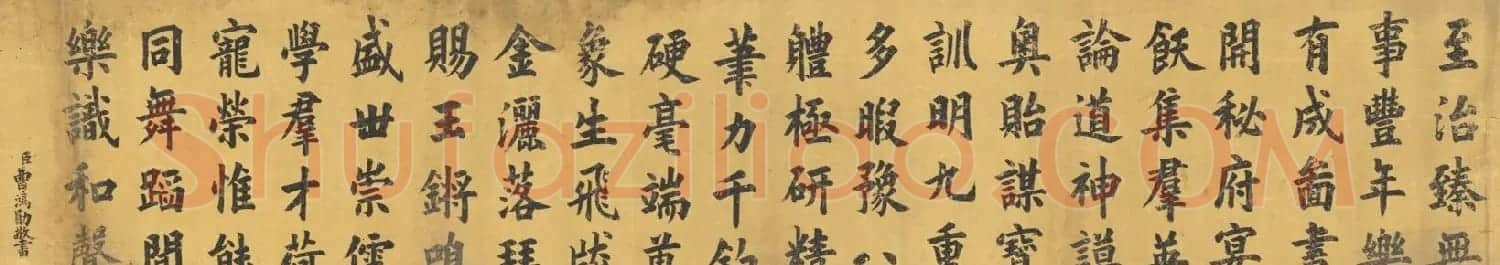 至治臻無
事豐年樂
有成啚書
開秘府宴
飫集羣英
論道神謨
奧貽謀寶
訓明九重
多暇豫八
軆極研精
筆力千鈞
硬毫端萬
象生飛
金灑落拜
賜玉鏘鳴
盛世崇儒
學羣才荷
寵榮惟能
同舞蹈聞
樂識和聲
臣曹鴻勛敬書
Shufaziliao.COM